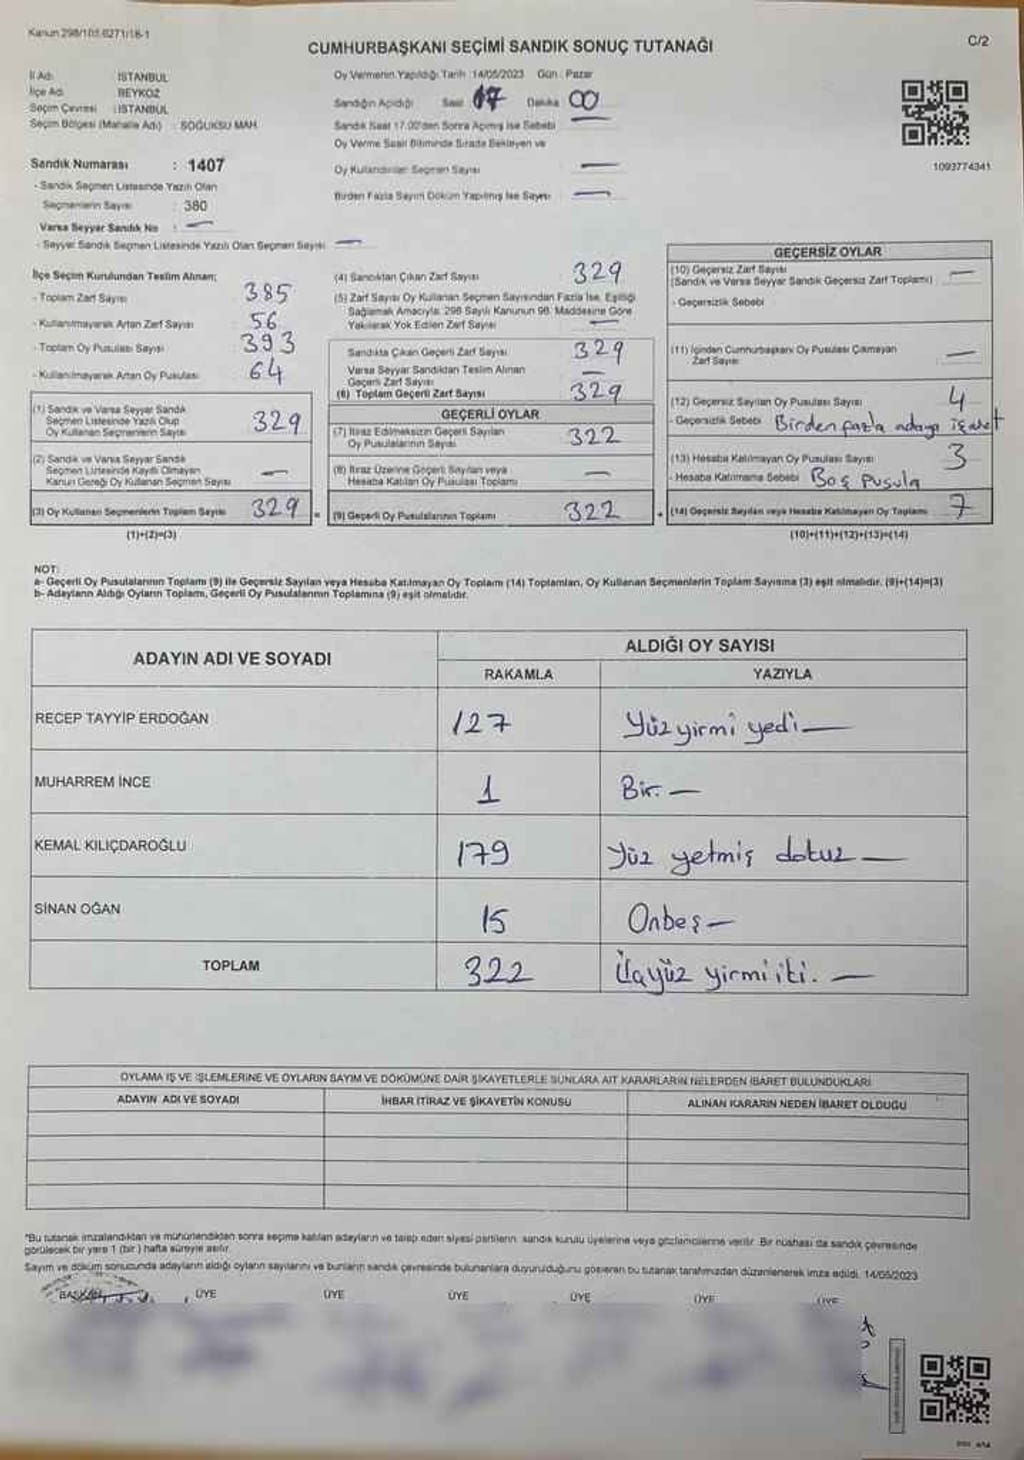 Kanun 298/105.6271/18-1
C/2
CUMHURBAŞKANI SEÇİMİ SANDIK SONUÇ TUTANAĞI
İl Adı : İSTANBUL
İlçe Adı : BEYKOZ
Seçim Çevresi : İSTANBUL
Seçim Bölgesi (Mahalle Adı) : SOĞUKSU MAH.
Oy Vermenin Yapıldığı Tarih : 14/05/2023 Gün : Pazar
Sandığın Açıldığı Saat 17 Dakika 00
Sandık Saat 17.00'den Sonra Açılmış İse Sebebi
Oy Verme Saati Bitiminde Sırada Bekleyen ve
Oy Kullandırılan Seçmen Sayısı —
Birden Fazla Sayım Döküm Yapılmış İse Sayısı —
1093774341
Sandık Numarası : 1407
- Sandık Seçmen Listesinde Yazılı Olan
Seçmenlerin Sayısı : 380
Varsa Seyyar Sandık No : —
- Seyyar Sandık Seçmen Listesinde Yazılı Olan Seçmen Sayısı —
İlçe Seçim Kurulundan Teslim Alınan;
- Toplam Zarf Sayısı 385
- Kullanılmayarak Artan Zarf Sayısı 56
- Toplam Oy Pusulası Sayısı 393
- Kullanılmayarak Artan Oy Pusulası 64
(1) Sandık ve Varsa Seyyar Sandık
Seçmen Listesinde Yazılı Olup
Oy Kullanan Seçmenlerin Sayısı 329
(2) Sandık ve Varsa Seyyar Sandık
Seçmen Listesinde Kayıtlı Olmayan
Kanun Gereği Oy Kullanan Seçmen Sayısı —
(3) Oy Kullanan Seçmenlerin Toplam Sayısı 329
(1)+(2)=(3)
(4) Sandıktan Çıkan Zarf Sayısı 329
(5) Zarf Sayısı Oy Kullanan Seçmen Sayısından Fazla İse, Eşitliği
Sağlamak Amacıyla; 298 Sayılı Kanunun 98. Maddesine Göre
Yakılarak Yok Edilen Zarf Sayısı —
Sandıkta Çıkan Geçerli Zarf Sayısı 329
Varsa Seyyar Sandıktan Teslim Alınan
Geçerli Zarf Sayısı —
(6) Toplam Geçerli Zarf Sayısı 329
GEÇERLİ OYLAR
(7) İtiraz Edilmeksizin Geçerli Sayılan
Oy Pusulalarının Sayısı 322
(8) İtiraz Üzerine Geçerli Sayılan veya
Hesaba Katılan Oy Pusulası Toplamı —
= (9) Geçerli Oy Pusulalarının Toplamı 322
GEÇERSİZ OYLAR
(10) Geçersiz Zarf Sayısı
(Sandık ve Varsa Seyyar Sandık Geçersiz Zarf Toplamı) —
- Geçersizlik Sebebi
(11) İçinden Cumhurbaşkanı Oy Pusulası Çıkmayan
Zarf Sayısı —
(12) Geçersiz Sayılan Oy Pusulası Sayısı 4
- Geçersizlik Sebebi Birden fazla adaya işaret
(13) Hesaba Katılmayan Oy Pusulası Sayısı 3
- Hesaba Katılmama Sebebi Boş pusula
+ (14) Geçersiz Sayılan veya Hesaba Katılmayan Oy Toplamı 7
(10)+(11)+(12)+(13)=(14)
NOT:
a- Geçerli Oy Pusulalarının Toplamı (9) ile Geçersiz Sayılan veya Hesaba Katılmayan Oy Toplamı (14) Toplamları, Oy Kullanan Seçmenlerin Toplam Sayısına (3) eşit olmalıdır. (9)+(14)=(3)
b- Adayların Aldığı Oyların Toplamı, Geçerli Oy Pusulalarının Toplamına (9) eşit olmalıdır.
ADAYIN ADI VE SOYADI ALDIĞI OY SAYISI
RAKAMLA YAZIYLA
RECEP TAYYİP ERDOĞAN 127 Yüz yirmi yedi —
MUHARREM İNCE 1 Bir. —
KEMAL KILIÇDAROĞLU 179 Yüz yetmiş dokuz —
SİNAN OĞAN 15 Onbeş —
TOPLAM 322 Üçyüz yirmi iki. —
OYLAMA İŞ VE İŞLEMLERİNE VE OYLARIN SAYIM VE DÖKÜMÜNE DAİR ŞİKAYETLERLE BUNLARA AİT KARARLARIN NELERDEN İBARET BULUNDUKLARI
ADAYIN ADI VE SOYADI İHBAR İTİRAZ VE ŞİKAYETİN KONUSU ALINAN KARARIN NEDEN İBARET OLDUĞU
*Bu tutanak imzalandıktan ve mühürlendikten sonra seçime katılan adayların ve talep eden siyasi partilerin, sandık kurulu üyelerine veya gözlemcilerine verilir. Bir nüshası da sandık çevresinde
görülecek bir yere 1 (bir) hafta süreyle asılır.
Sayım ve döküm sonucunda adayların aldığı oyların sayılarını ve bunların sandık çevresinde bulunanlara duyurulduğunu gösteren bu tutanak tarafımızdan düzenlenerek imza edildi. 14/05/2023
BAŞKAN ÜYE ÜYE ÜYE ÜYE ÜYE ÜYE